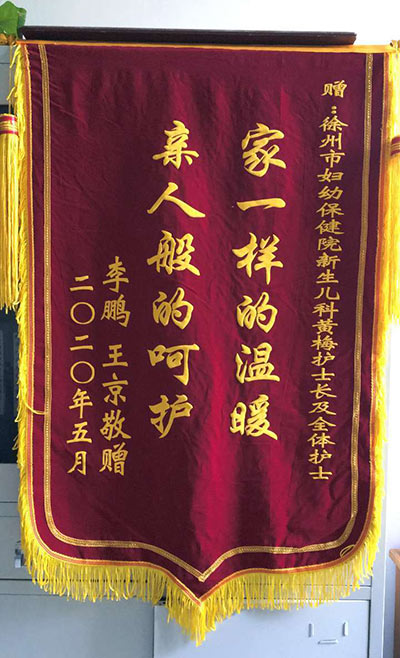 赠：徐州市妇幼保健院新生儿科黄梅护士长及全体护士
家一样的温暖
亲人般的呵护
李鹏 王京敬赠
二〇二〇年五月